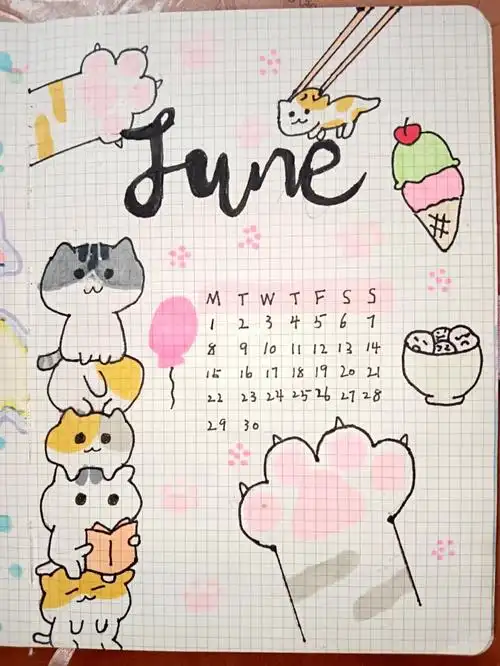 June
M T W T F S S
1 2 3 4 5 6 7
8 9 10 11 12 13 14
15 16 17 18 19 20 21
22 23 24 25 26 27 28
29 30